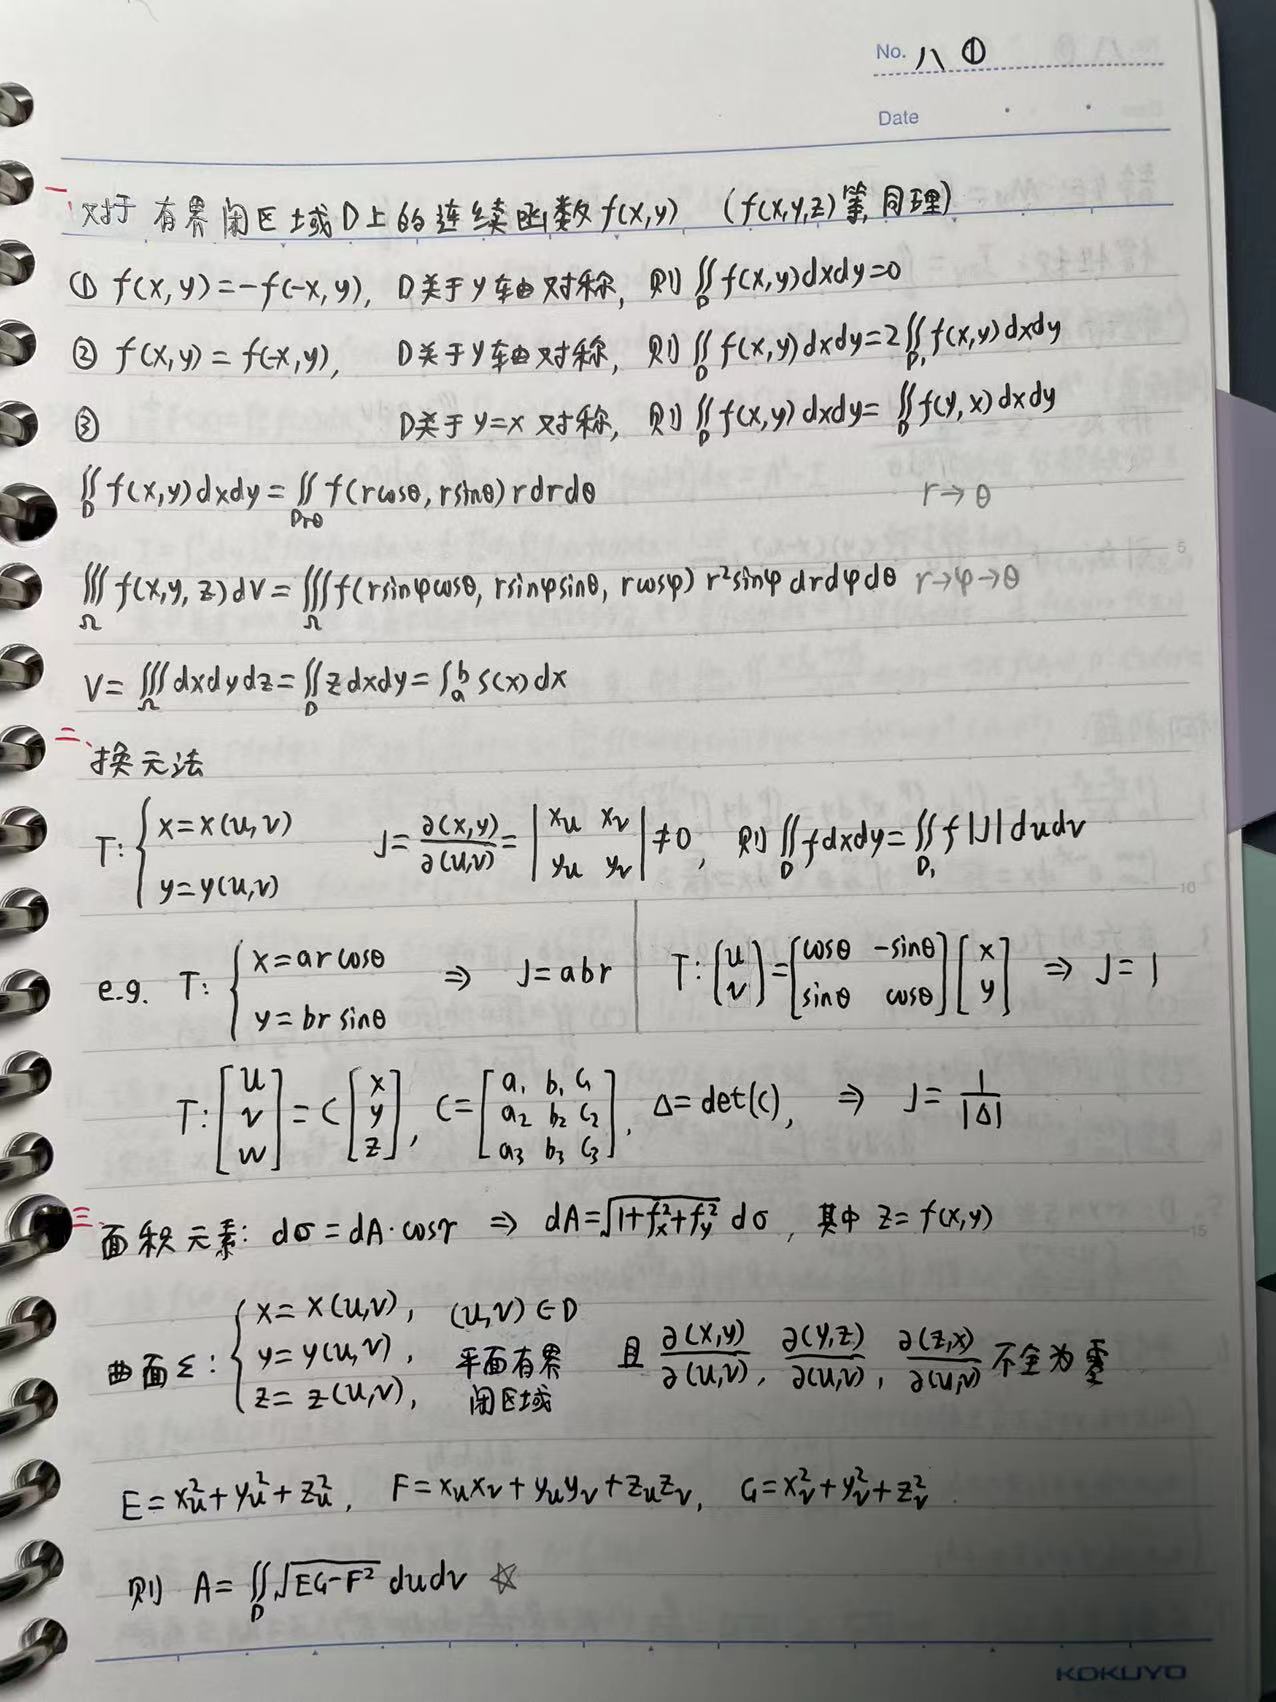 No. 八 ①
Date
一、对于有界闭区域D上的连续函数f(x,y) (f(x,y,z)等,同理)
① f(x,y)=-f(-x,y), D关于y轴对称, 则∬_D f(x,y)dxdy=0
② f(x,y)=f(-x,y), D关于y轴对称, 则∬_D f(x,y)dxdy=2∬_{D₁} f(x,y)dxdy
③ D关于y=x对称, 则∬_D f(x,y)dxdy=∬_D f(y,x)dxdy
∬_D f(x,y)dxdy=∬_{Drθ} f(rcosθ,rsinθ)rdrdθ r→θ
5
∭_Ω f(x,y,z)dV=∭_Ω f(rsinφcosθ, rsinφsinθ, rcosφ)r²sinφ drdφdθ r→φ→θ
V=∭_Ω dxdydz=∬_D zdxdy=∫_a^b S(x)dx
二、换元法
T:{x=x(u,v) y=y(u,v) J=∂(x,y)/∂(u,v)=|x_u x_v y_u y_v|≠0, 则∬_D fdxdy=∬_{D₁} f|J|dudv
10
e.g. T:{x=arcosθ y=brsinθ ⇒ J=abr | T:[u v]=[cosθ -sinθ sinθ cosθ][x y] ⇒ J=1
T:[u v w]=C[x y z], C=[a₁ b₁ c₁ a₂ b₂ c₂ a₃ b₃ c₃], Δ=det(C), ⇒ J=1/|Δ|
三、面积元素: dσ=dA·cosγ ⇒ dA=√(1+f_x²+f_y²) dσ, 其中z=f(x,y)
15
曲面Σ:{x=x(u,v), y=y(u,v), z=z(u,v), (u,v)∈D 平面有界闭区域 且 ∂(x,y)/∂(u,v), ∂(y,z)/∂(u,v), ∂(z,x)/∂(u,v) 不全为零
E=x_u²+y_u²+z_u², F=x_ux_v+y_uy_v+z_uz_v, G=x_v²+y_v²+z_v²
则 A=∬_D √(EG-F²) dudv ☆
KOKUYO